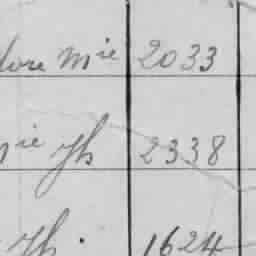 dore Mie 2033
ie Jh 2338
Jh. 1624